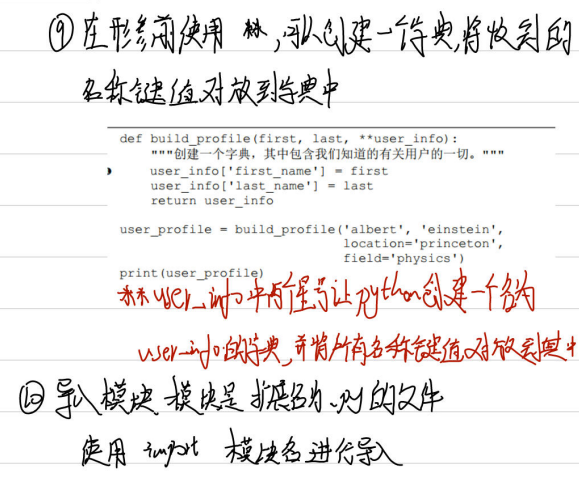 ⑨ 在形参前使用 **,可以创建一个字典,将收到的
名称键值对放到字典中
def build_profile(first, last, **user_info):
"""创建一个字典，其中包含我们知道的有关用户的一切。"""
user_info['first_name'] = first
user_info['last_name'] = last
return user_info
user_profile = build_profile('albert', 'einstein',
location='princeton',
field='physics')
print(user_profile)
**user_info中两个星号让python创建一个名为
user_info的字典,并将所有名称键值对放到其中
⑩ 导入模块 模块是扩展名为.py的文件
使用 import 模块名进行导入